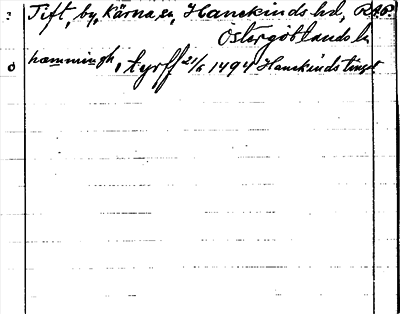 Tift, by, Kärna sn, Hanekinds hd,
Östergötlands l.
hæmmingh, i tyrff 21/5 1494 Hanekinds tinget